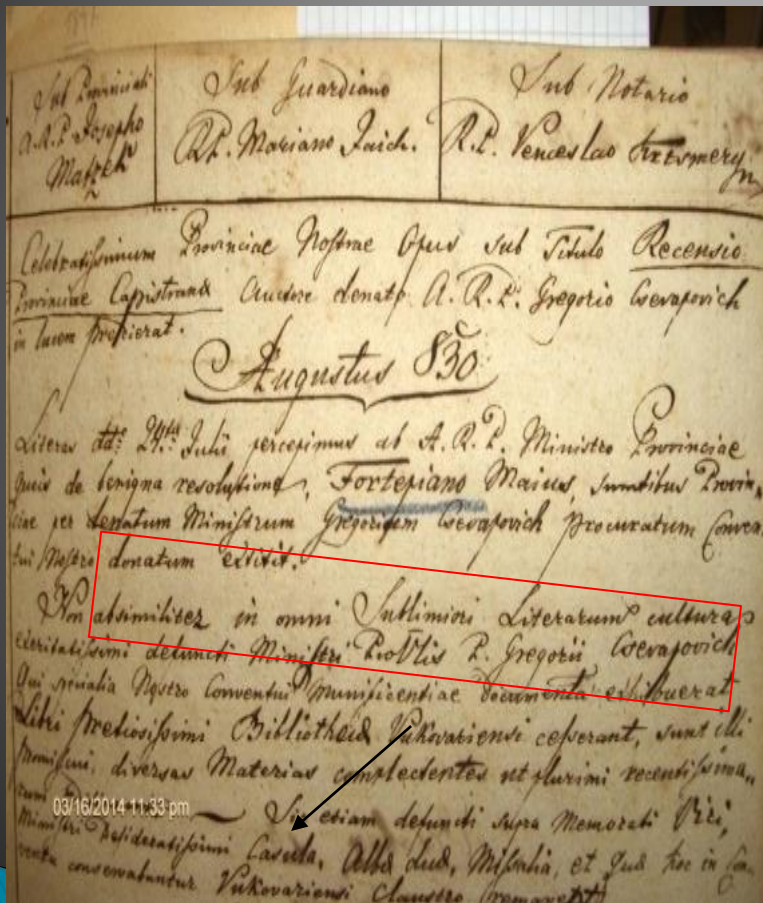 Sub Provinciali
A.R.P. Josepho
Matzek
Sub Guardiano
R.P. Mariano Jaich.
Sub Notario
R.P. Venceslao
Celebratissimum Provinciae Nostrae Opus sub Titulo Recensio
Provinciae Capistranae Auctore denato A.R.P. Gregorio Csevapovich
in lucem prodierat.
Augustus 830
Literas ddto 24ta Julii percepimus ab A.R.P. Ministro Provinciae
quis de benigna resolutione, Fortepiano Maius, sumtibus Provin,,
ciae per denatum Ministrum Gregorium Csevapovich procuratum Conven,,
tui Nostro donatum extitit.
Non absimiliter in omni Sublimiori Literarum cultura
exercitatissimi defuncti Ministri Provlis P. Gregorii Csevapovich
Qui specialia Nostro Conventui munificentiae documenta exhibuerat
Libri pretiosissimi Bibliothecae Vukovariensi cesserant, sunt illi
diversas Materias complectentes ut plurimi recentissima,,
rum
03/16/2014 11:33 pm
Sic etiam defuncti supra Memorati Viri,
Ministri desideratissimi Casula, Albae duae, Missalia, et quae hoc in Con,,
ventu conservabantur Vukovariensi Claustro